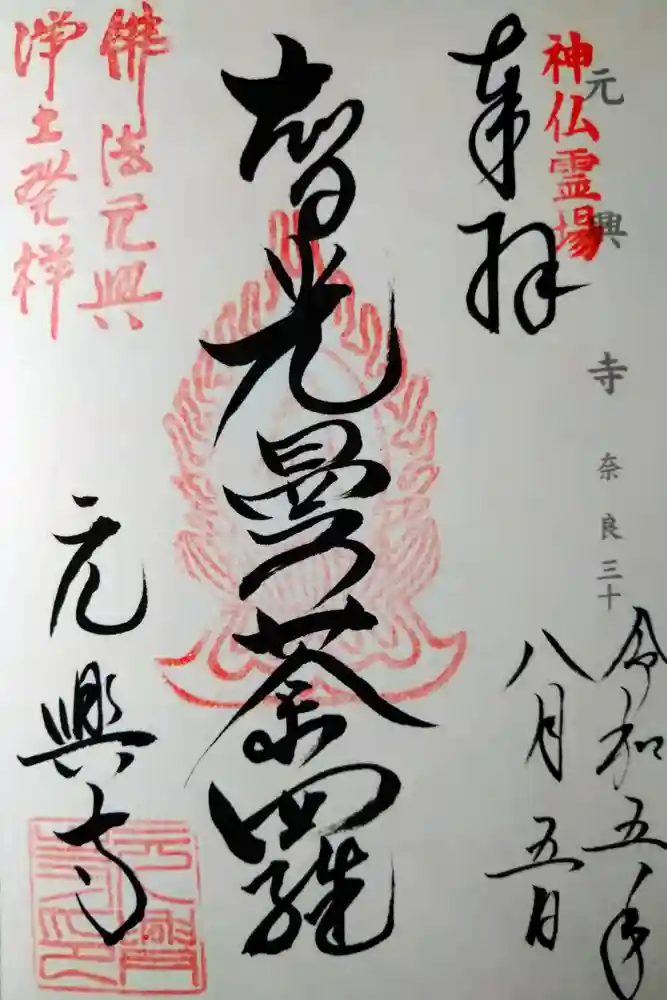 元興寺 奈良三十
神仏霊場
奉拝
令和五年
八月五日
智光曼荼羅
佛法元興
浄土発祥
元興寺